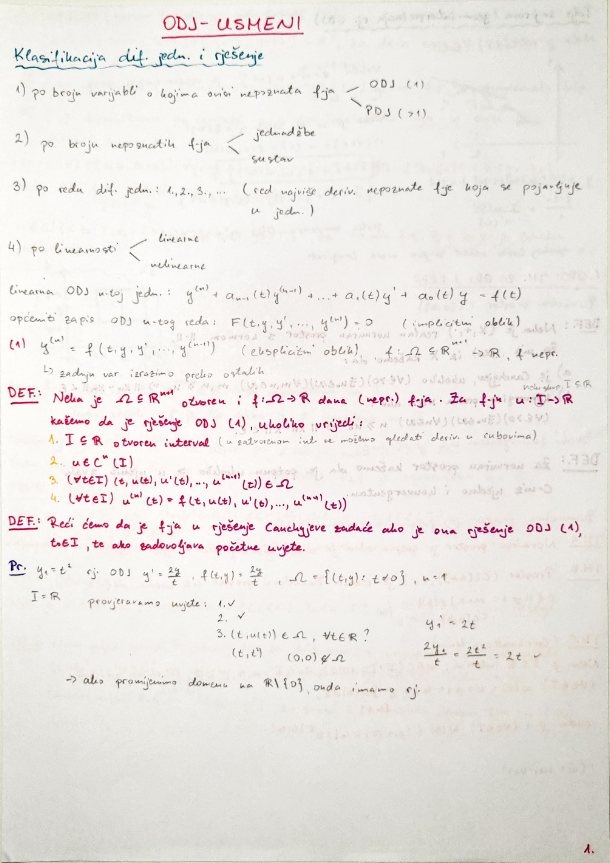 ODJ - USMENI
Klasifikacija dif. jedn. i rješenje
1) po broju varijabli o kojima ovisi nepoznata f-ja
ODJ (1)
PDJ (>1)
2) po broju nepoznatih f-ja
jednadžbe
sustav
3) po redu dif. jedn.: 1., 2., 3., ... (red najviše deriv. nepoznate f-je koja se pojavljuje
u jedn.)
4) po linearnosti
linearne
nelinearne
linearna ODJ n-tog jedn.: y⁽ⁿ⁾ + aₙ₋₁(t)y⁽ⁿ⁻¹⁾ + ... + a₁(t)y' + a₀(t)y = f(t)
općeniti zapis ODJ n-tog reda: F(t, y, y', ..., y⁽ⁿ⁾) = 0 (implicitni oblik)
(1) y⁽ⁿ⁾ = f(t, y, y', ..., y⁽ⁿ⁻¹⁾) (eksplicitni oblik), f: Ω ⊆ ℝⁿ⁺¹ → ℝ, f nepr.
↳ zadnju var izrazimo preko ostalih
DEF.: Neka je Ω ⊆ ℝⁿ⁺¹ otvoren i f: Ω → ℝ dana (nepr.) f-ja. Za f-ju u: I → ℝ
I ⊆ ℝ
kažemo da je rješenje ODJ (1), ukoliko vrijedi:
1. I ⊆ ℝ otvoren interval (u zatvorenom int. ne možemo gledati deriv. u rubovima)
2. u ∈ Cⁿ(I)
3. (∀t∈I) (t, u(t), u'(t), ..., u⁽ⁿ⁻¹⁾(t)) ∈ Ω
4. (∀t∈I) u⁽ⁿ⁾(t) = f(t, u(t), u'(t), ..., u⁽ⁿ⁻¹⁾(t))
DEF.: Reći ćemo da je f-ja u rješenje Cauchyjeve zadaće ako je ona rješenje ODJ (1),
t₀∈I, te ako zadovoljava početne uvjete.
Pr. y₁ = t² rj. ODJ y' = 2y/t . f(t,y) = 2y/t , Ω = {(t,y): t ≠ 0}, n = 1
I = ℝ provjeravamo uvjete: 1. ✓
2. ✓
3. (t, u(t)) ∈ Ω, ∀t∈ℝ ?
(t, t²) (0,0) ∉ Ω
y₁' = 2t
2y₁/t = 2t²/t = 2t ✓
→ ako promijenimo domenu na ℝ\{0}, onda imamo rj.
1.